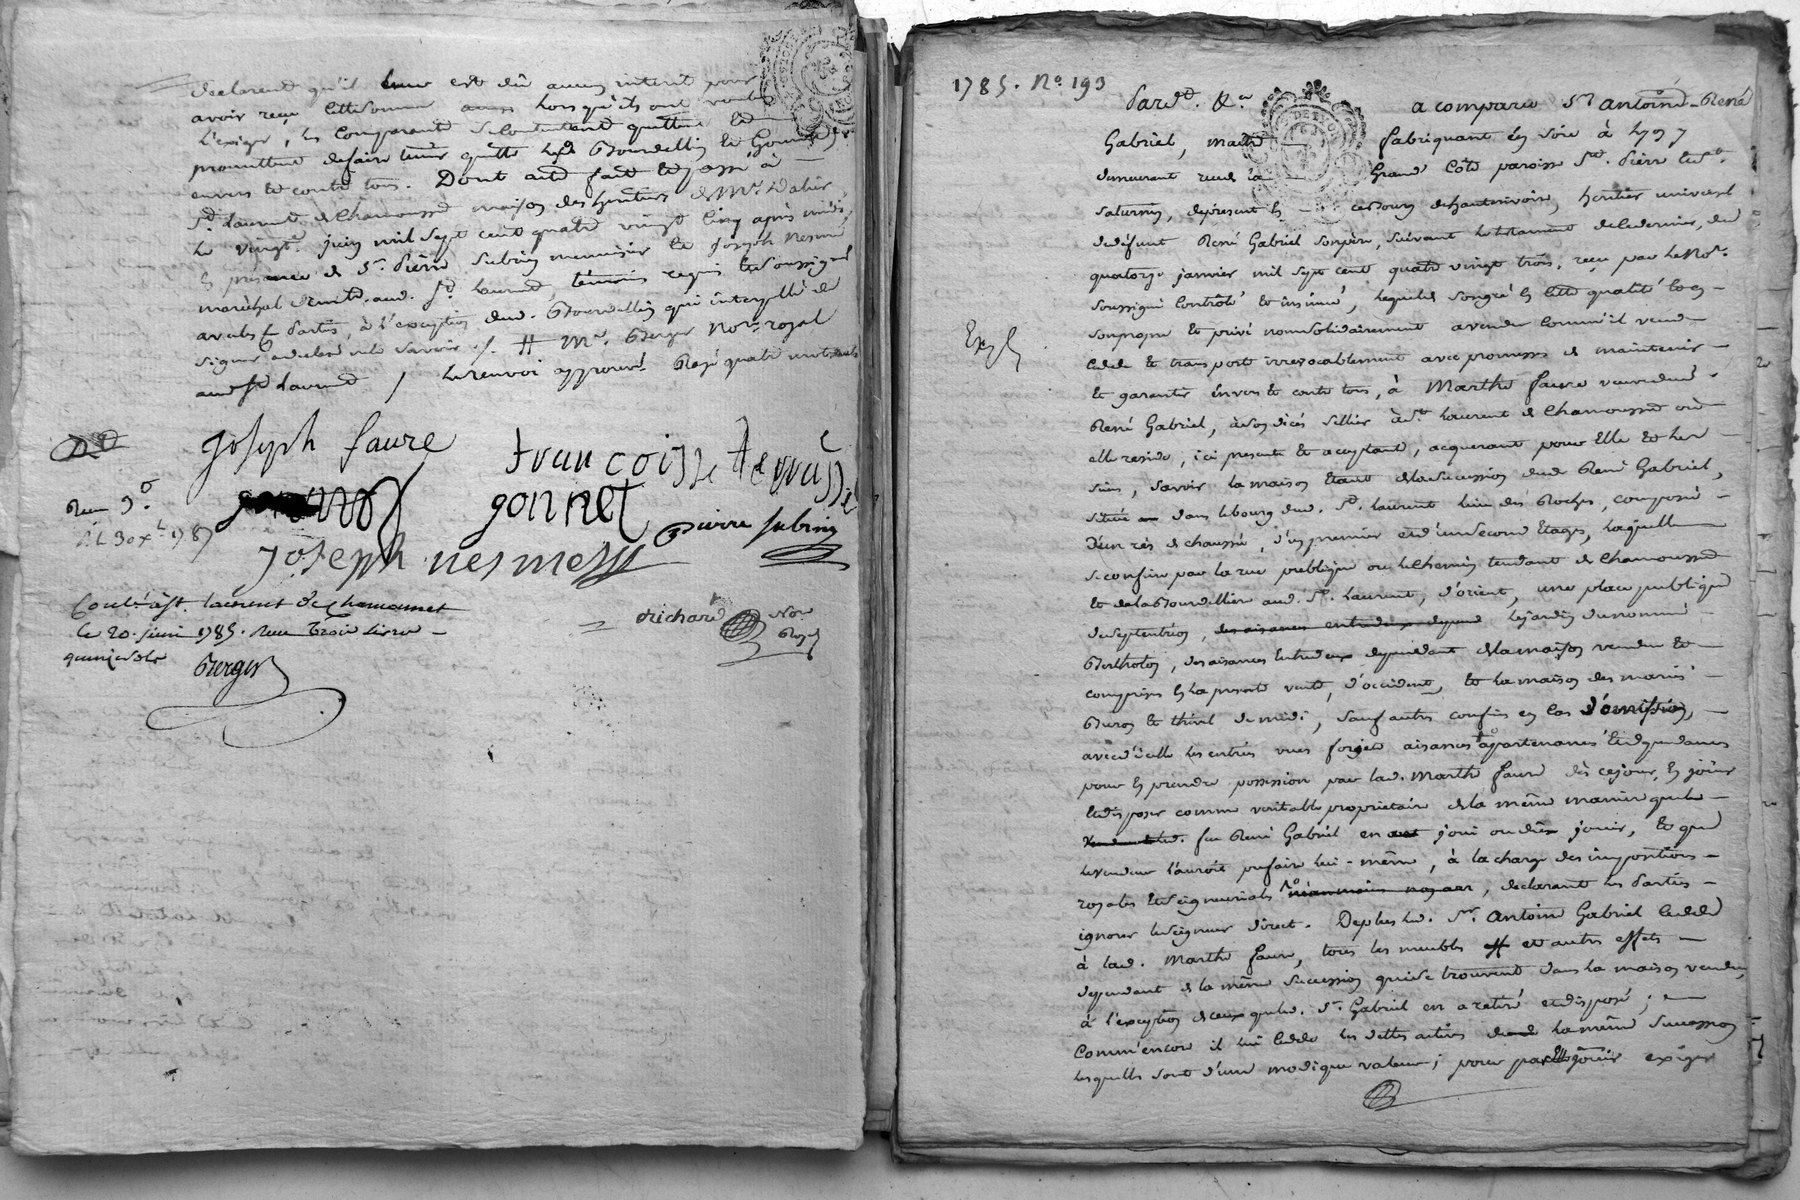 declarent qu'il leur est dû aucun interet pour
avoir reçu cette somme lors qu'ils ont voulu
l'exiger, les comparants se contentent quittent et
promettent de faire tenir quitte led. Bourdellin et Gonnet
envers et contre tous. Dont acte fait et passé à
St. Laurent de Chamousset maison des heritiers de Mr. Dalier
le vingt juin mil sept cent quatre vingt cinq après midi,
en presence de Sr. Pierre Subrin menuisier et Joseph Nesme
maréchal demt. aud. St. Laurent, temoins requis et soussignés
avec les parties, à l'exception dud. Bourdellin qui interpellé de
signer a declaré ne le savoir /. # Mr. Berger Nore. royal
aud. St. Laurent / le renvoi approuvé. Rayé quatre mots nuls
Joseph faure
françoise
gonnet
pierre subrin
Joseph nesme
Reçu 9s.
Contlé. à St. laurent De Chamousset
le 20. juin 1785. Reçu trois livres
quinze sols
Berger
Richard Nore
Royal
1785. No. 193
Pardt. &a a comparu Sr. antoine-René
Gabriel, maitre fabriquant en soie à Lyon
demeurant rue de la Grand Côte paroisse St. Pierre et St.
Saturnin, de present en ce bourg de hauterivoire, heritier universel
de défunt René Gabriel son père, suivant le testament de ce dernier, du
quatorze janvier mil sept cent quatre vingt trois, reçu par le Nore.
soussigné controlé et insinué, lequel de son gré en cette qualité et en
son propre et privé nom solidairement a vendu comme il vend
Exp.
cede et transporte irrevocablement avec promesse de maintenir
et garantir envers et contre tous, à Marthe faure veuve dud.
René Gabriel, à son dicés sellier à St. Laurent de Chamousset où
elle reside, ici presente et acceptant, acquerant pour elle et les
siens, savoir la maison etant de la succession dud. René Gabriel,
située dans le bourg dud. St. Laurent lieu des Roches, composée
d'un rès de chaussée, d'un premier et d'un second etages, laquelle
se confine par la rue publique ou le chemin tendant de Chamousset
et de la Bourdelliere aud. St. Laurent, d'orient, une place publique
de septentrion, des aisances entredeux depend le jardin du nommé
Bertholon, des aisances entredeux dependant de la maison vendue et
comprises en la presente vente, d'occident, et la maison des mariés
Buron et thivel de midi, sauf autres confins en cas d'omission,
avec d'icelle les entrées vues forjets aisances appartenances et dependances
pour en prendre possession par lad. Marthe faure dès ce jour, en jouir
et disposer comme veritable proprietaire de la même maniere que le
feu René Gabriel en a joui ou dû jouir, et que
le vendeur l'auroit pu faire lui-même, à la charge des impositions
royales et seigneuriales, declarant les parties
ignorer le seigneur direct. De plus led. Sr. antoine Gabriel cede
à lad. Marthe faure, tous les meubles et autres effets
dependant de la même succession qui se trouvent dans la maison vendue,
à l'exception de ceux que led. Sr. Gabriel en a retiré et disposé;
comm'encore il lui cede les dettes actives de la même succession
lesquelles sont d'une modique valeur; pour par elle jouir exiger